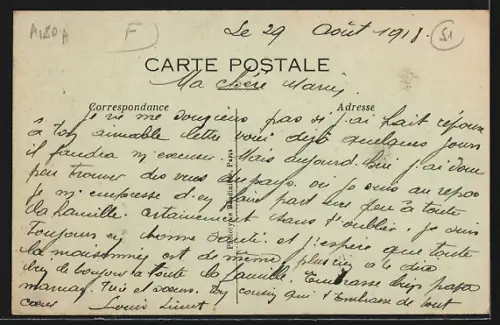 A180A F Le 29 Août 1918. 51
CARTE POSTALE
Ma chère Marie
Correspondance Adresse
je ne me souviens pas si j'ai fait réponse
à ton aimable lettre voici déjà quelques jours
il faudra m'excuser. Mais aujourd'hui j'ai donc
peu trouver des vues du pays. où je suis au repos
Je m'empresse d'en faire part ainsi qu'à toute
la famille. certainement sans t'oublier. je suis
toujours en bonne santé. et j'espère que toute
la maisonnée est de même plus rien à te dire
bien le bonjour à toute la famille. Embrasse bien papa
maman. ton cousin qui t'embrasse de tout
cœur Louis